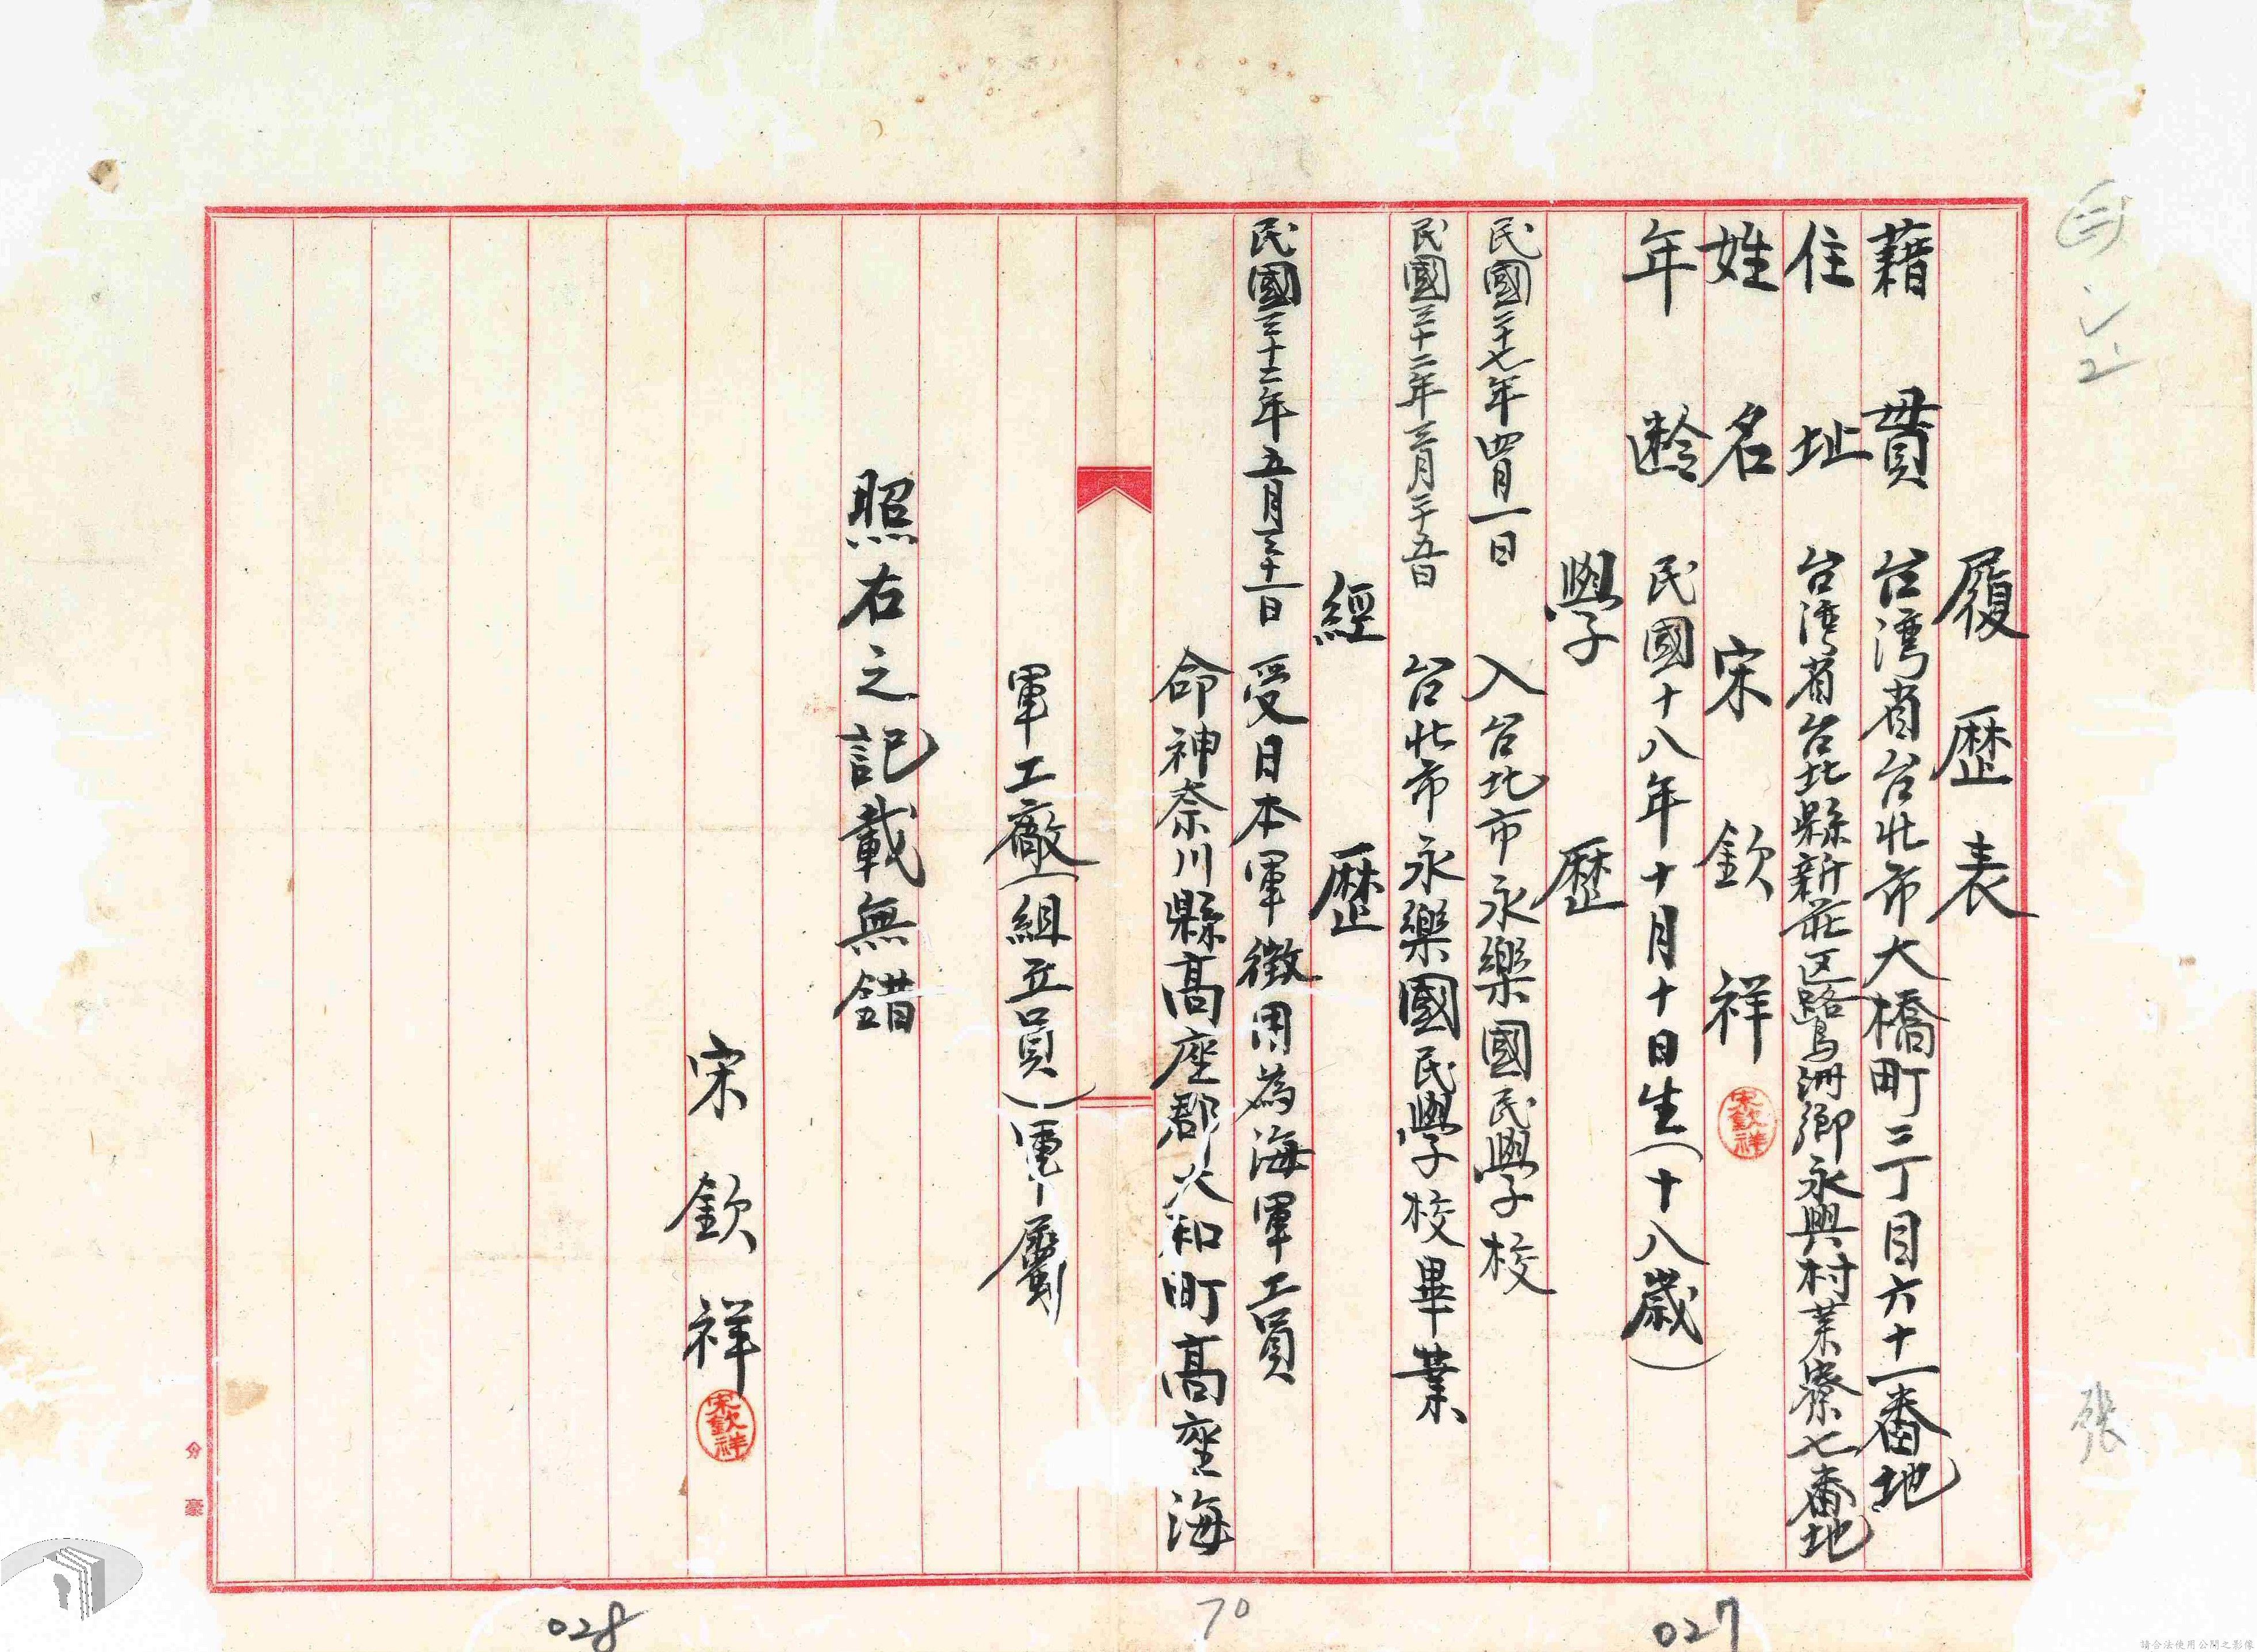 履歷表
藉貫 台湾省台北市大橋町三丁目六十一番地
住址 台湾省台北縣新莊区鷺洲鄉永興村菜寮七番地
姓名 宋欽祥 宋欽祥
年齡 民國十八年十月十日生(十八歲)
學歷
民國二十七年四月一日 入台北市永樂國民學校
民國三十二年三月二十五日 台北市永樂國民學校畢業
經歷
民國三十二年五月三十一日 受日本軍徵用為海軍工員
命神奈川縣高座郡大和町高座海
軍工廠(組立員)軍屬
照右之記載無錯
宋欽祥 宋欽祥
張
027
70
028
請合法使用公開之影像